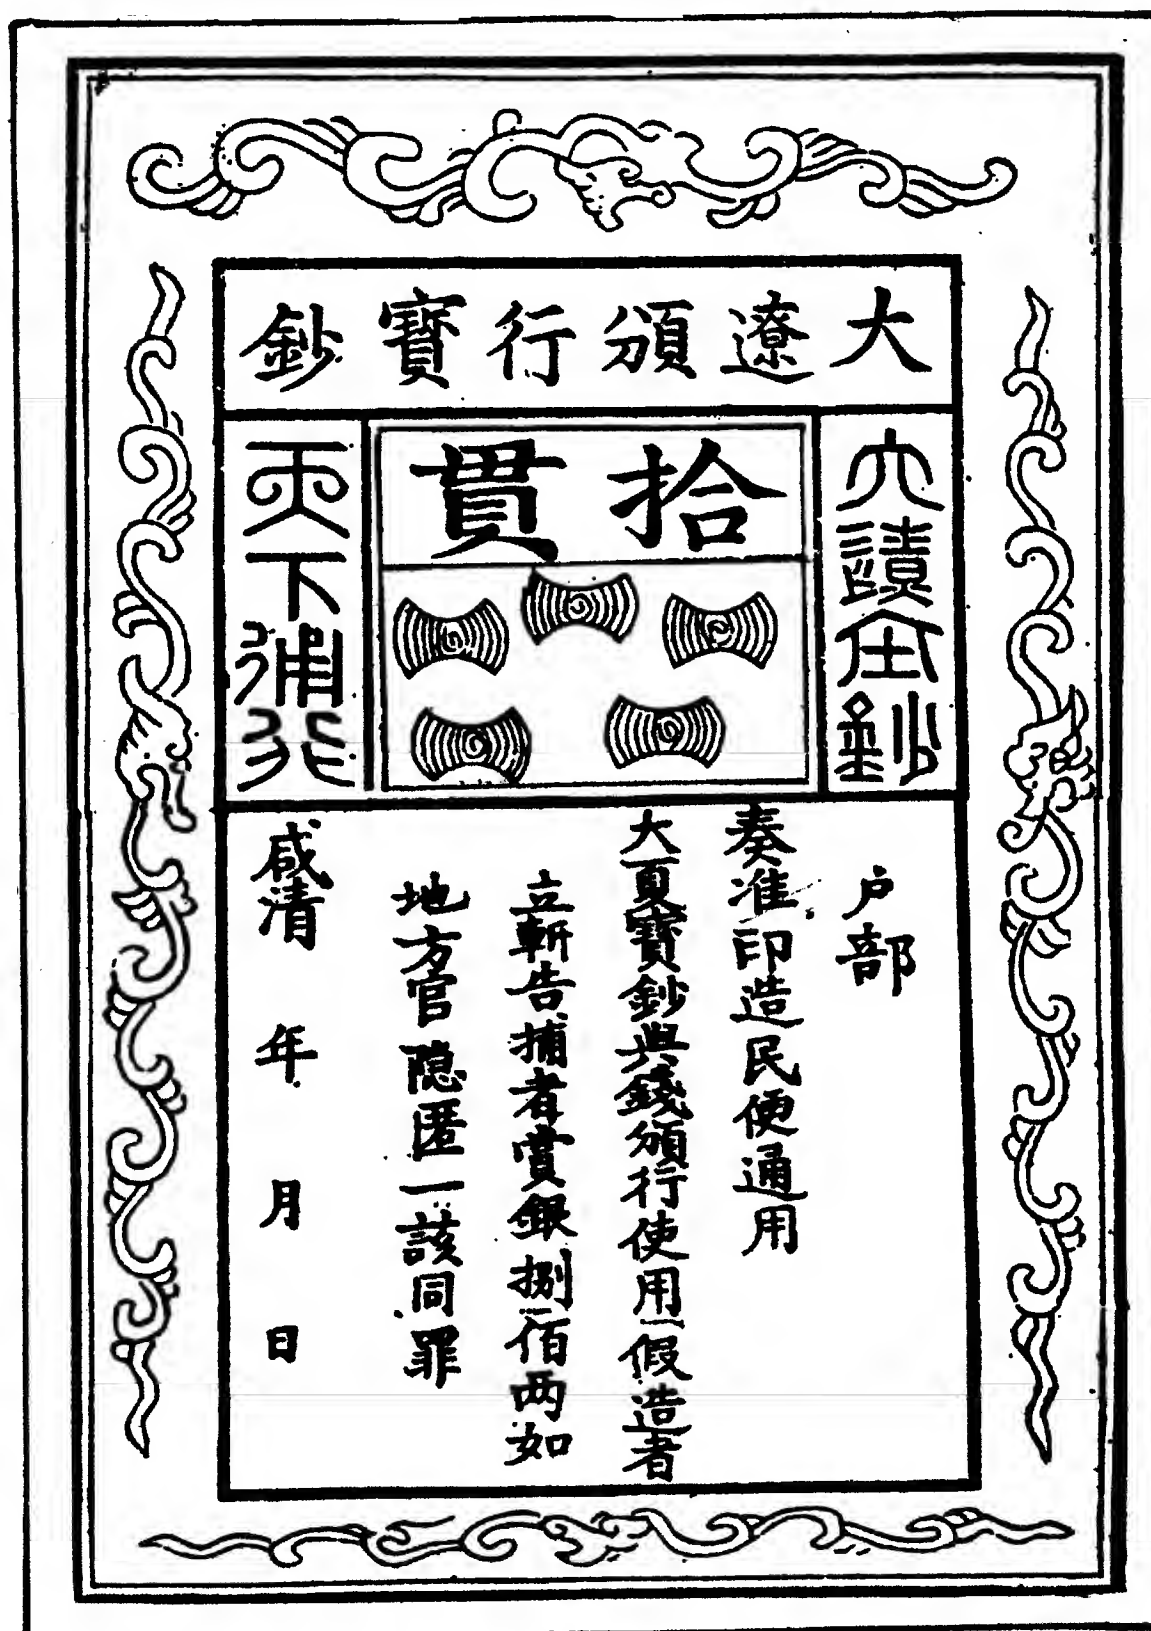 大遼頒行寶鈔
拾貫
天下通行
户部
奏准印造民便通用
大夏寳鈔與錢頒行使用假造者
立斬告捕者賞銀捌佰两如
地方官隐匿一該同罪
咸清 年 月 日